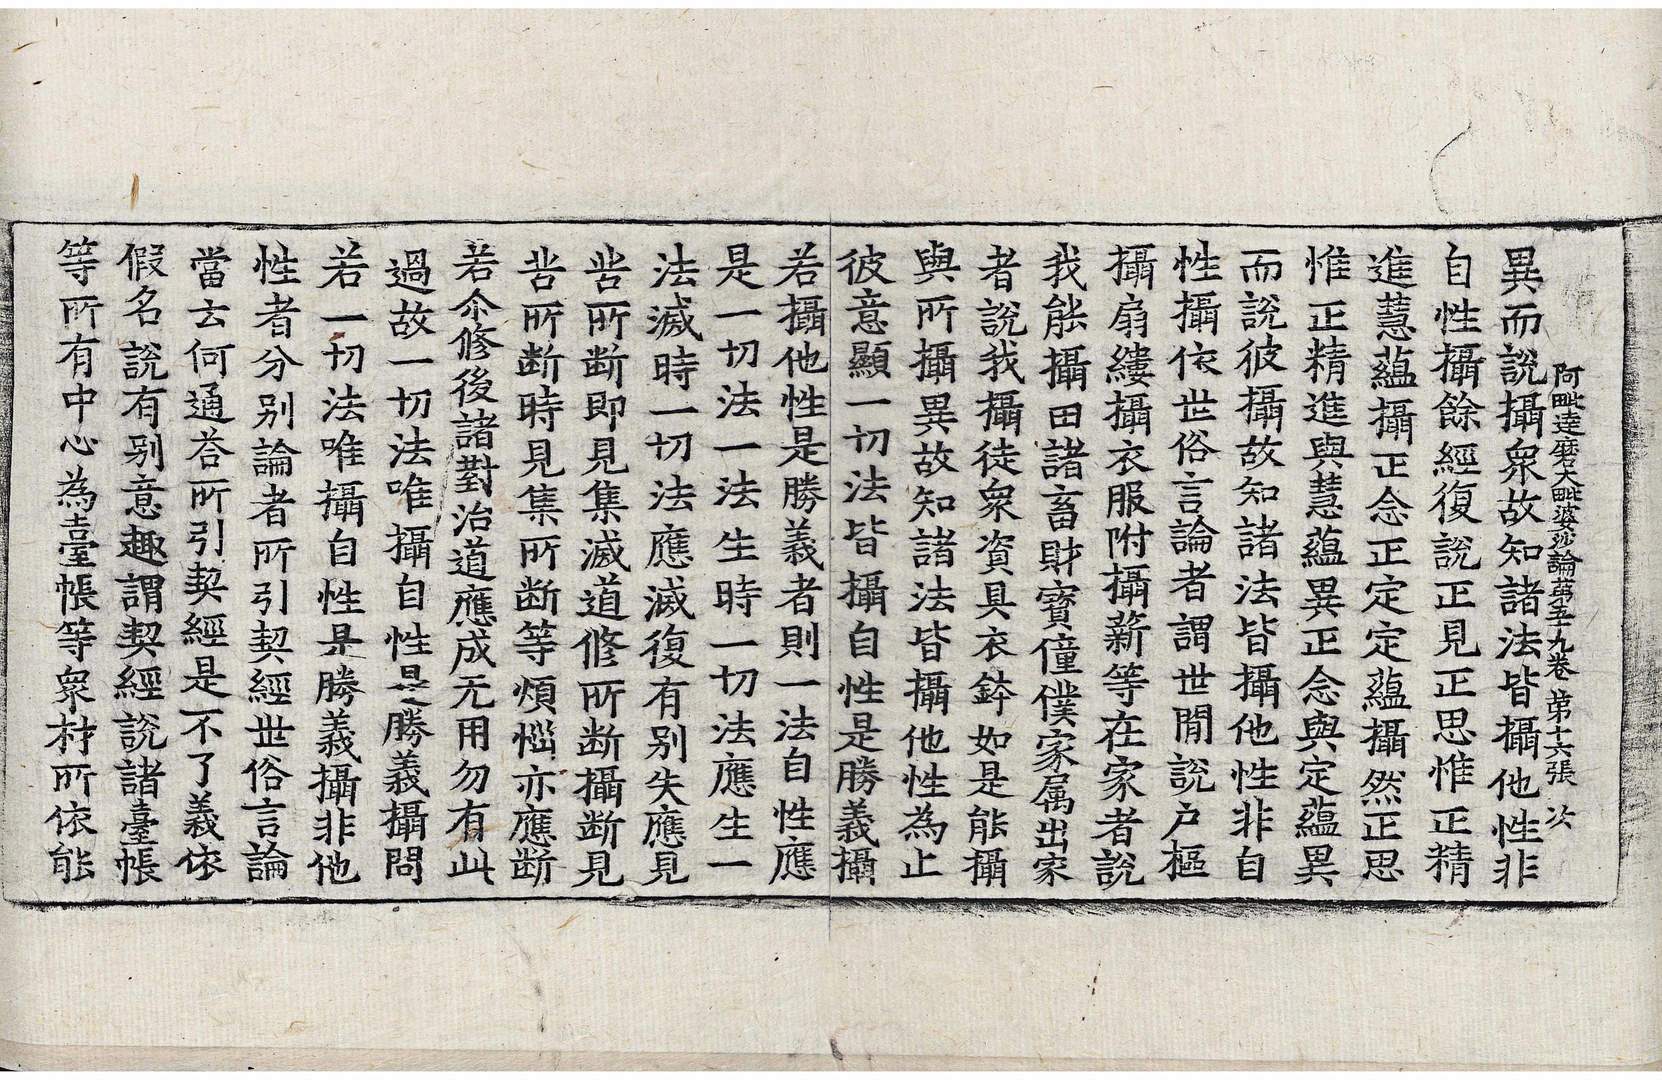 阿毗達磨大毗婆沙論第五十九卷 第十六張 次
異而說攝衆故知諸法皆攝他性非
自性攝餘經復說正見正思惟正精
進慧蘊攝正念正定定蘊攝然正思
惟正精進與慧蘊異正念與定蘊異
而說彼攝故知諸法皆攝他性非自
性攝依世俗言論者謂世間說户樞
攝扇縷攝衣服附攝薪等在家者說
我能攝田諸畜財寶僮僕家属出家
者說我攝徒衆資具衣鉢如是能攝
與所攝異故知諸法皆攝他性為止
彼意顯一切法皆攝自性是勝義攝
若攝他性是勝義者則一法自性應
是一切法一法生時一切法應生一
法滅時一切法應滅復有别失應見
苦所断即見集滅道修所断攝断見
苦所断時見集所断等煩惱亦應断
若尒修後諸對治道應成无用勿有此
過故一切法唯攝自性是勝義攝問
若一切法唯攝自性是勝義攝非他
性者分别論者所引契經世俗言論
當去何通荅所引契經是不了義依
假名說有别意趣謂契經說諸臺帳
等所有中心為臺帳等衆材所依能